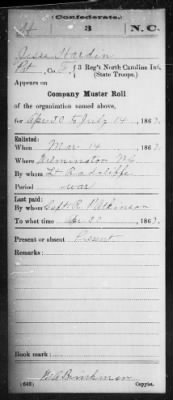 Confederate.
H 3 N.C.
Jesse Hardin
Pvt, Co. , 3 Reg't North Carolina Inf.
(State Troops.)
Appears on
Company Muster Roll
of the organization named above,
for Apr 30 to July 14, 1863.
Enlisted:
When Mar 14, 186
Where Wilmington N.C.
By whom Lt Radcliffe
Period war
Last paid:
By whom Capt R Wilkinson
To what time Apr 30, 1863.
Present or absent Present
Remarks:
Book mark:
(642) Copyist.